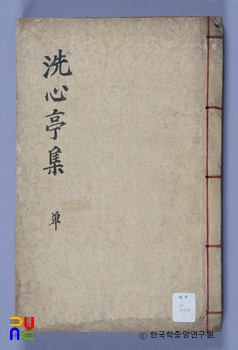 洗心亭集
單
© 한국학중앙연구원